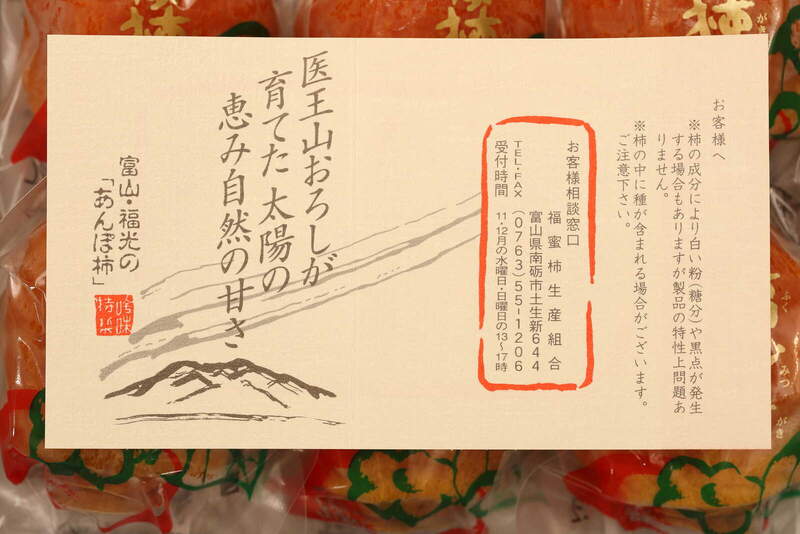 お客様へ
※柿の成分により白い粉(糖分)や黒点が発生
する場合もありますが製品の特性上問題あ
りません。
※柿の中に種が含まれる場合がございます。
ご注意下さい。
お客様相談窓口
福蜜柿生産組合
富山県南砺市土生新644
TEL・FAX (0763)55-1206
受付時間 11・12月の水曜日・日曜日の13〜17時
医王山おろしが
育てた太陽の
恵み自然の甘さ
富山・福光の
「あんぽ柿」
吟味
特選
柿
がき
みつ
がき